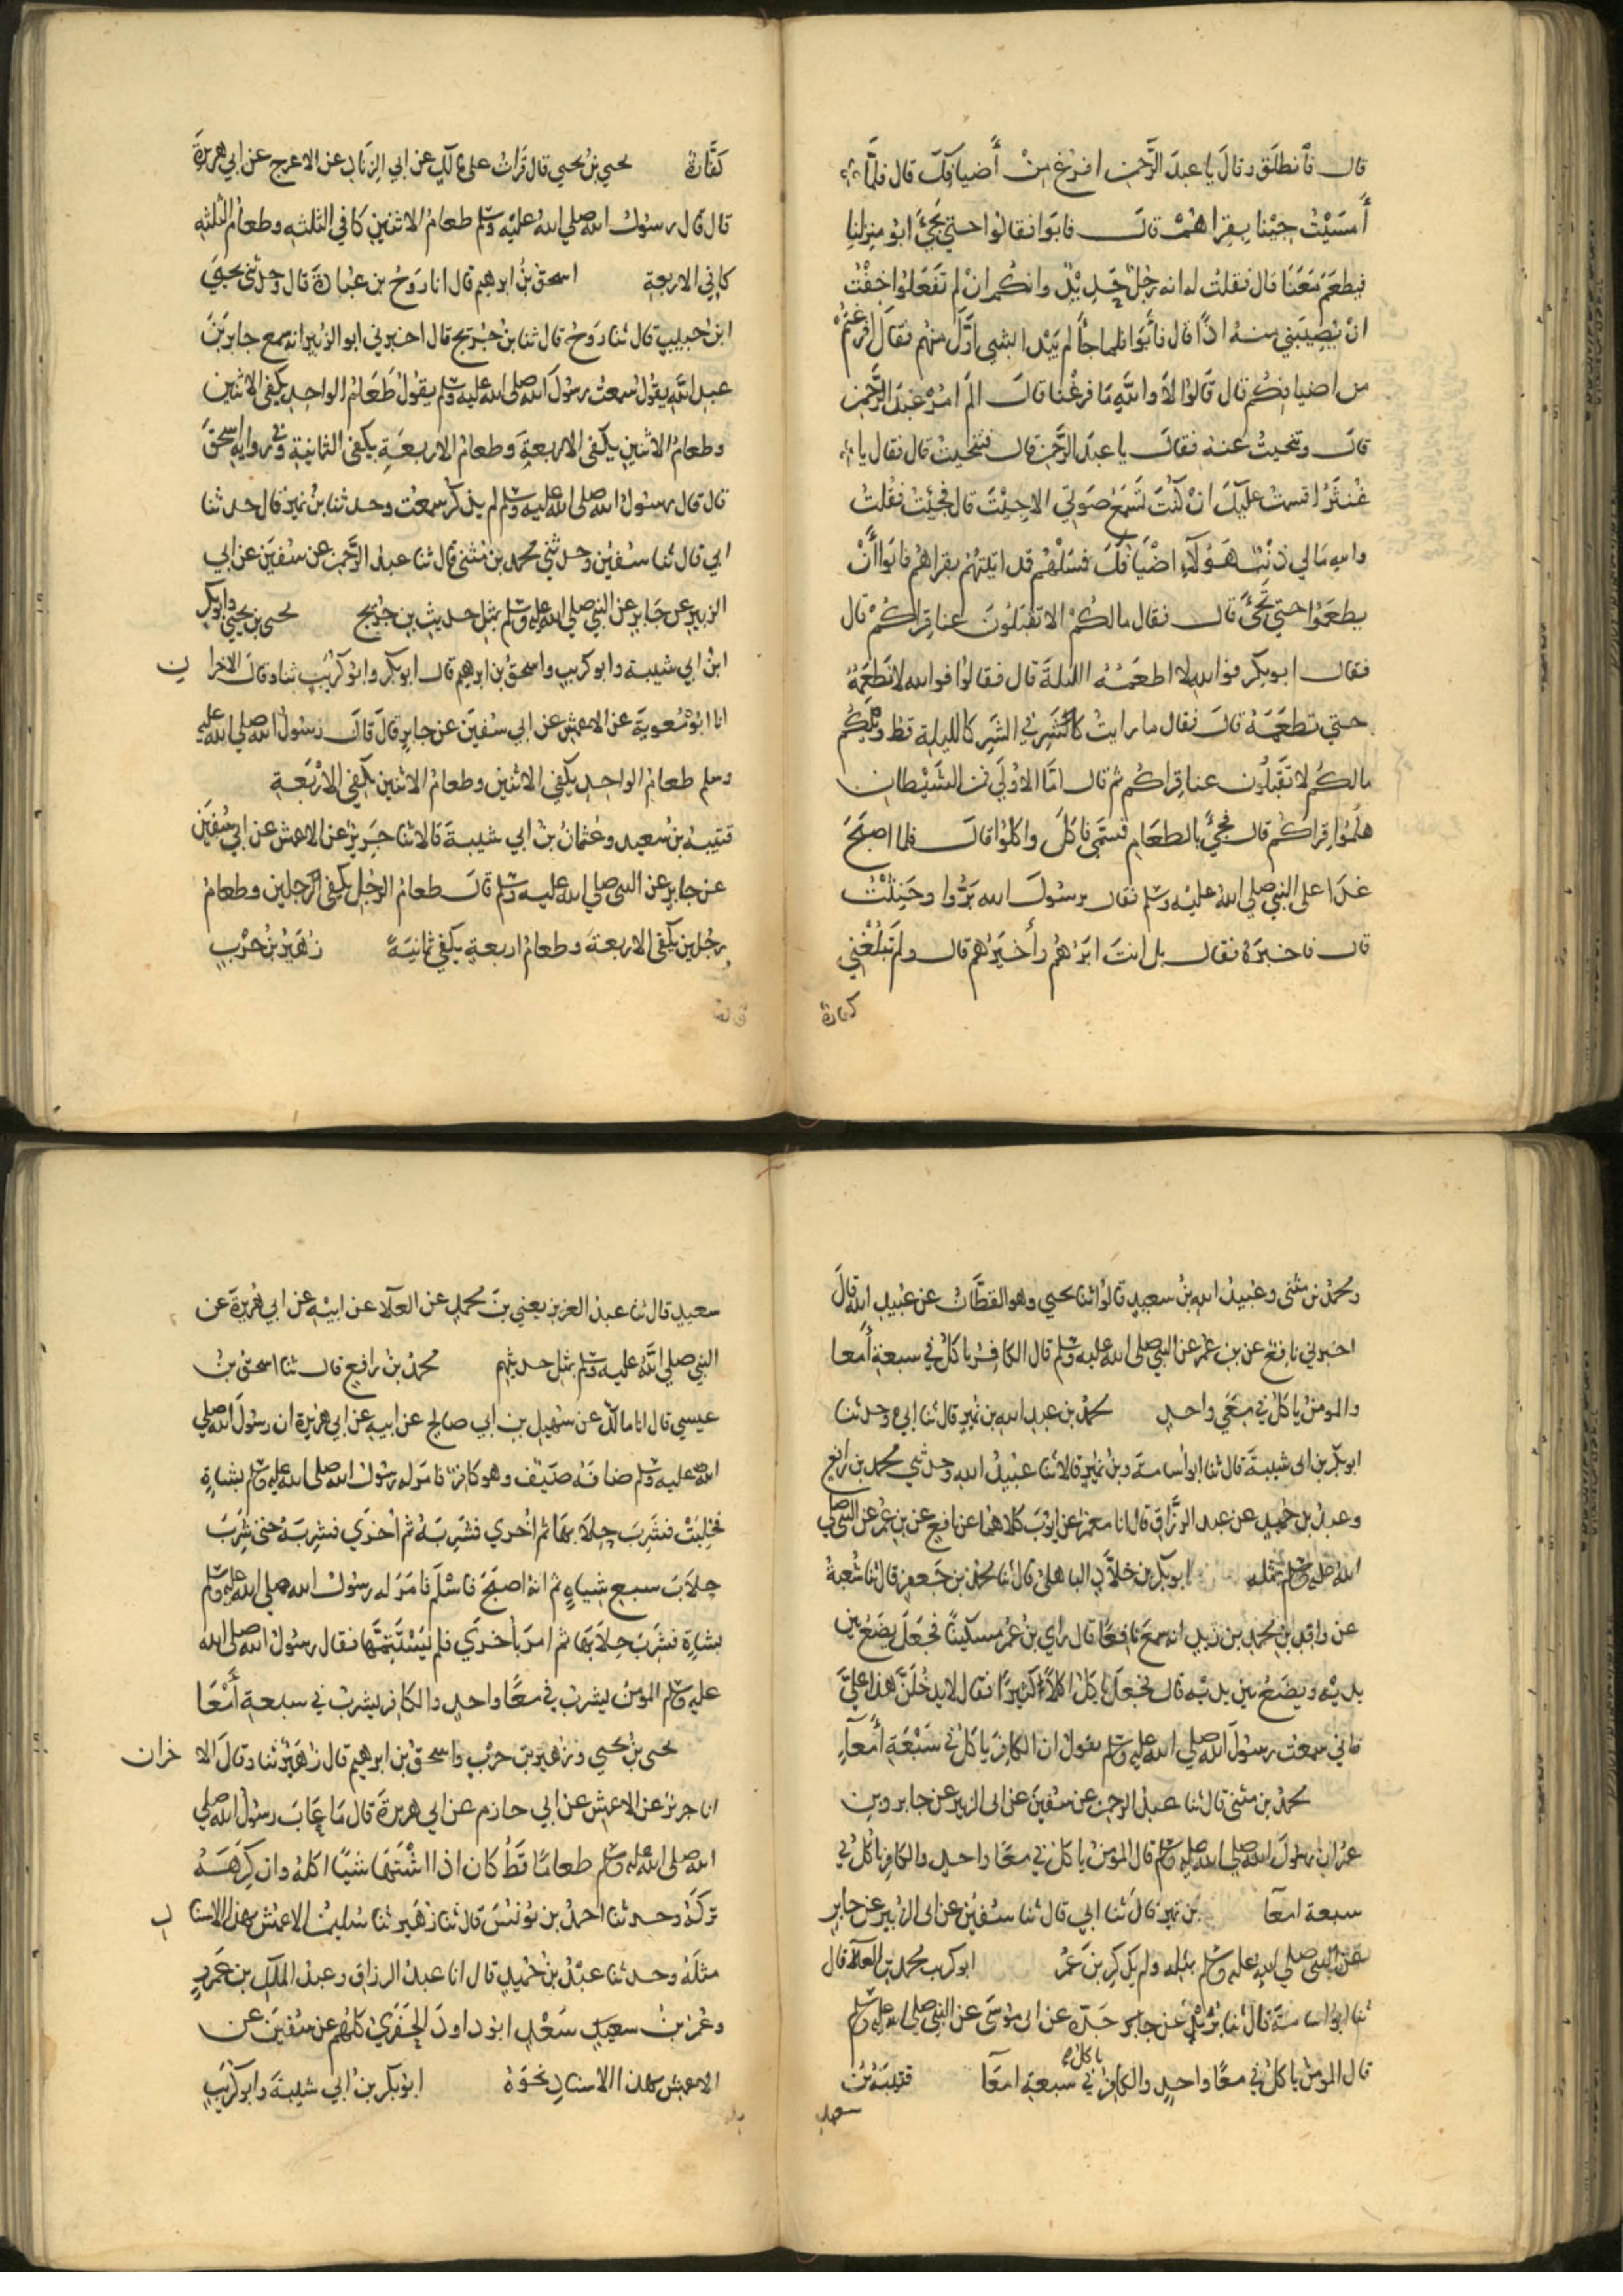 قال فانطلق وقال يا عبد الرحمن افرغ من أضيافك قال فلما
أمسيت جئنا بقراهم قال فابوا فقالوا حتى يجئ ابو منزلنا
فيطعم معنا قال فقلت له انه رجل حديد وانكم ان لم تفعلوا خفت
ان يصيبني منه اذا قال فأبوا فلما جأ لم يبدا بشيء اول منهم فقال افرغتم
من اضيافكم قال قالوا لا والله ما فرغنا قال الم امر عبد الرحمن
قال وتنحيت عنه فقال يا عبد الرحمن قال فتنحيت قال فقال يا
غنثر اقسمت عليك ان كنت تسمع صوتي الا جيت قال فجئت فقلت
والله مالي ذنب هؤلآء اضيافك فسلهم قد اتيتهم بقراهم فابوا أن
يطعموا حتى تجئ قال فقال مالكم الا تقبلون عنا قراكم قال
فقال ابو بكر فوالله لا اطعمه الليلة قال فقالوا فوالله لا نطعمه
حتى تطعمه قال فقال ما رايت كالشر في الشر كالليلة قط ويلكم
مالكم لا تقبلون عنا قراكم ثم قال اما الاولى فمن الشيطان
هلموا قراكم قال فجئ بالطعام فسمى فاكل واكلوا قال فلما اصبح
غدا على النبي صلى الله عليه وسلم فقال يرسول الله بروا وحنثت
قال فاخبره فقال بل انت ابرهم وأخيرهم قال ولم تبلغني
كفارة
كفارة يحيى بن يحيى قال قرات على مالك عن ابي الزناد عن الاعرج عن ابي هريرة
قال قال رسول الله صلى الله عليه وسلم طعام الاثنين كافي الثلثه وطعام الثلثه
كافي الاربعة اسحق بن ابرهيم قال انا روح بن عبادة قال وحدثني يحيى
ابن حبيب قال ثنا روح قال ثنا بن جريج قال اخبرني ابو الزبير انه سمع جابر بن
عبد الله يقول سمعت رسول الله صلى الله عليه وسلم يقول طعام الواحد يكفي الاثنين
وطعام الاثنين يكفي الاربعة وطعام الاربعة يكفي الثمانية وفي رواية اسحق
قال قال رسول الله صلى الله عليه وسلم لم يذكر سمعت وحدثنا بن نمير قال حدثنا
ابي قال ثنا سفين وحدثني محمد بن مثنى قال ثنا عبد الرحمن عن سفين عن ابي
الزبير عن جابر عن النبي صلى الله عليه وسلم بمثل حديث بن جريج يحيى بن يحيى وابو بكر
ابن ابي شيبة وابو كريب واسحق بن ابرهيم قال ابو بكر وابو كريب ثنا وقال الاخرا ن
انا ابو معوية عن الاعمش عن ابي سفين عن جابر قال قال رسول الله صلى الله عليه
وسلم طعام الواحد يكفي الاثنين وطعام الاثنين يكفي الاربعة
قتيبة بن سعيد وعثمان بن ابي شيبة قالا ثنا جرير عن الاعمش عن ابي سفين
عن جابر عن النبي صلى الله عليه وسلم قال طعام الرجل يكفي الرجلين وطعام
رجلين يكفي الاربعة وطعام اربعة يكفي ثمانية زهير بن حرب
ومحمد بن مثنى وعبيد الله بن سعيد قالوا ثنا يحيى وهو القطان عن عبيد الله قال
اخبرني نافع عن بن عمر عن النبي صلى الله عليه وسلم قال الكافر ياكل في سبعة أمعا
والمومن ياكل في معى واحد محمد بن عبد الله بن نمير قال ثنا ابي وحدثنا
ابو بكر بن ابي شيبة قال ثنا ابو اسامة وبن نمير قالا ثنا عبيد الله وحدثني محمد بن رافع
وعبد بن حميد عن عبد الرزاق قال انا معمر عن ايوب كلاهما عن نافع عن بن عمر عن النبي صلى
الله عليه وسلم بمثله ابو بكر بن خلاد الباهلي قال ثنا محمد بن جعفر قال ثنا شعبة
عن واقد بن محمد بن زيد انه سمع نافعا قال راى بن عمر مسكينا فجعل يضع بين
يديه ويضع بين يديه قال فجعل ياكل اكلا كثيرا فقال لا يدخلن هذا علي
فاني سمعت رسول الله صلى الله عليه وسلم يقول ان الكافر ياكل في سبعة أمعآء
محمد بن مثنى قال ثنا عبد الرحمن عن سفين عن ابي الزبير عن جابر وبن
عمر ان رسول الله صلى الله عليه وسلم قال المومن ياكل في معا واحد والكافر ياكل في
سبعة امعآ بن نمير قال ثنا ابي قال ثنا سفين عن ابي الزبير عن جابر
عن النبي صلى الله عليه وسلم بمثله ولم يذكر بن عمر ابو كريب محمد بن العلآ قال
ثنا ابو اسامة قال ثنا بريد عن جده عن ابي موسى عن النبي صلى الله عليه وسلم
قال المومن ياكل في معا واحد والكافر ياكل في سبعة امعآ قتيبة بن
سعيد
سعيد قال ثنا عبد العزيز يعني بن محمد عن العلآ عن ابيه عن ابي هريرة عن
النبي صلى الله عليه وسلم بمثل حديثهم محمد بن رافع قال ثنا اسحق بن
عيسى قال انا مالك عن سهيل بن ابي صالح عن ابيه عن ابي هريرة ان رسول الله صلى
الله عليه وسلم ضافه ضيف وهو كافر فامر له رسول الله صلى الله عليه وسلم بشاة
فحلبت فشرب حلابها ثم اخرى فشربه ثم اخرى فشربه حتى شرب
حلاب سبع شياه ثم انه اصبح فاسلم فامر له رسول الله صلى الله عليه وسلم
بشاة فشرب حلابها ثم امر باخرى فلم يستتمها فقال رسول الله صلى الله
عليه وسلم المومن يشرب في معا واحد والكافر يشرب في سبعة أمعا
يحيى بن يحيى وزهير بن حرب واسحق بن ابرهيم قال زهير ثنا وقال الا خران
انا جرير عن الاعمش عن ابي حازم عن ابي هريرة قال ما عاب رسول الله صلى
الله صلى الله عليه وسلم طعاما قط كان اذا اشتهى شيا اكله وان كرهه
تركه وحدثنا احمد بن يونس قال ثنا زهير ثنا سليمن الاعمش بهذا الاسنا د
مثله وحدثنا عبد بن حميد قال انا عبد الرزاق وعبد الملك بن عمرو
وعمر بن سعيد سعد ابو داود الحفري كلهم عن سفين عن
الاعمش بهذا الاسناد نحوه ابو بكر بن ابي شيبة وابو كريب